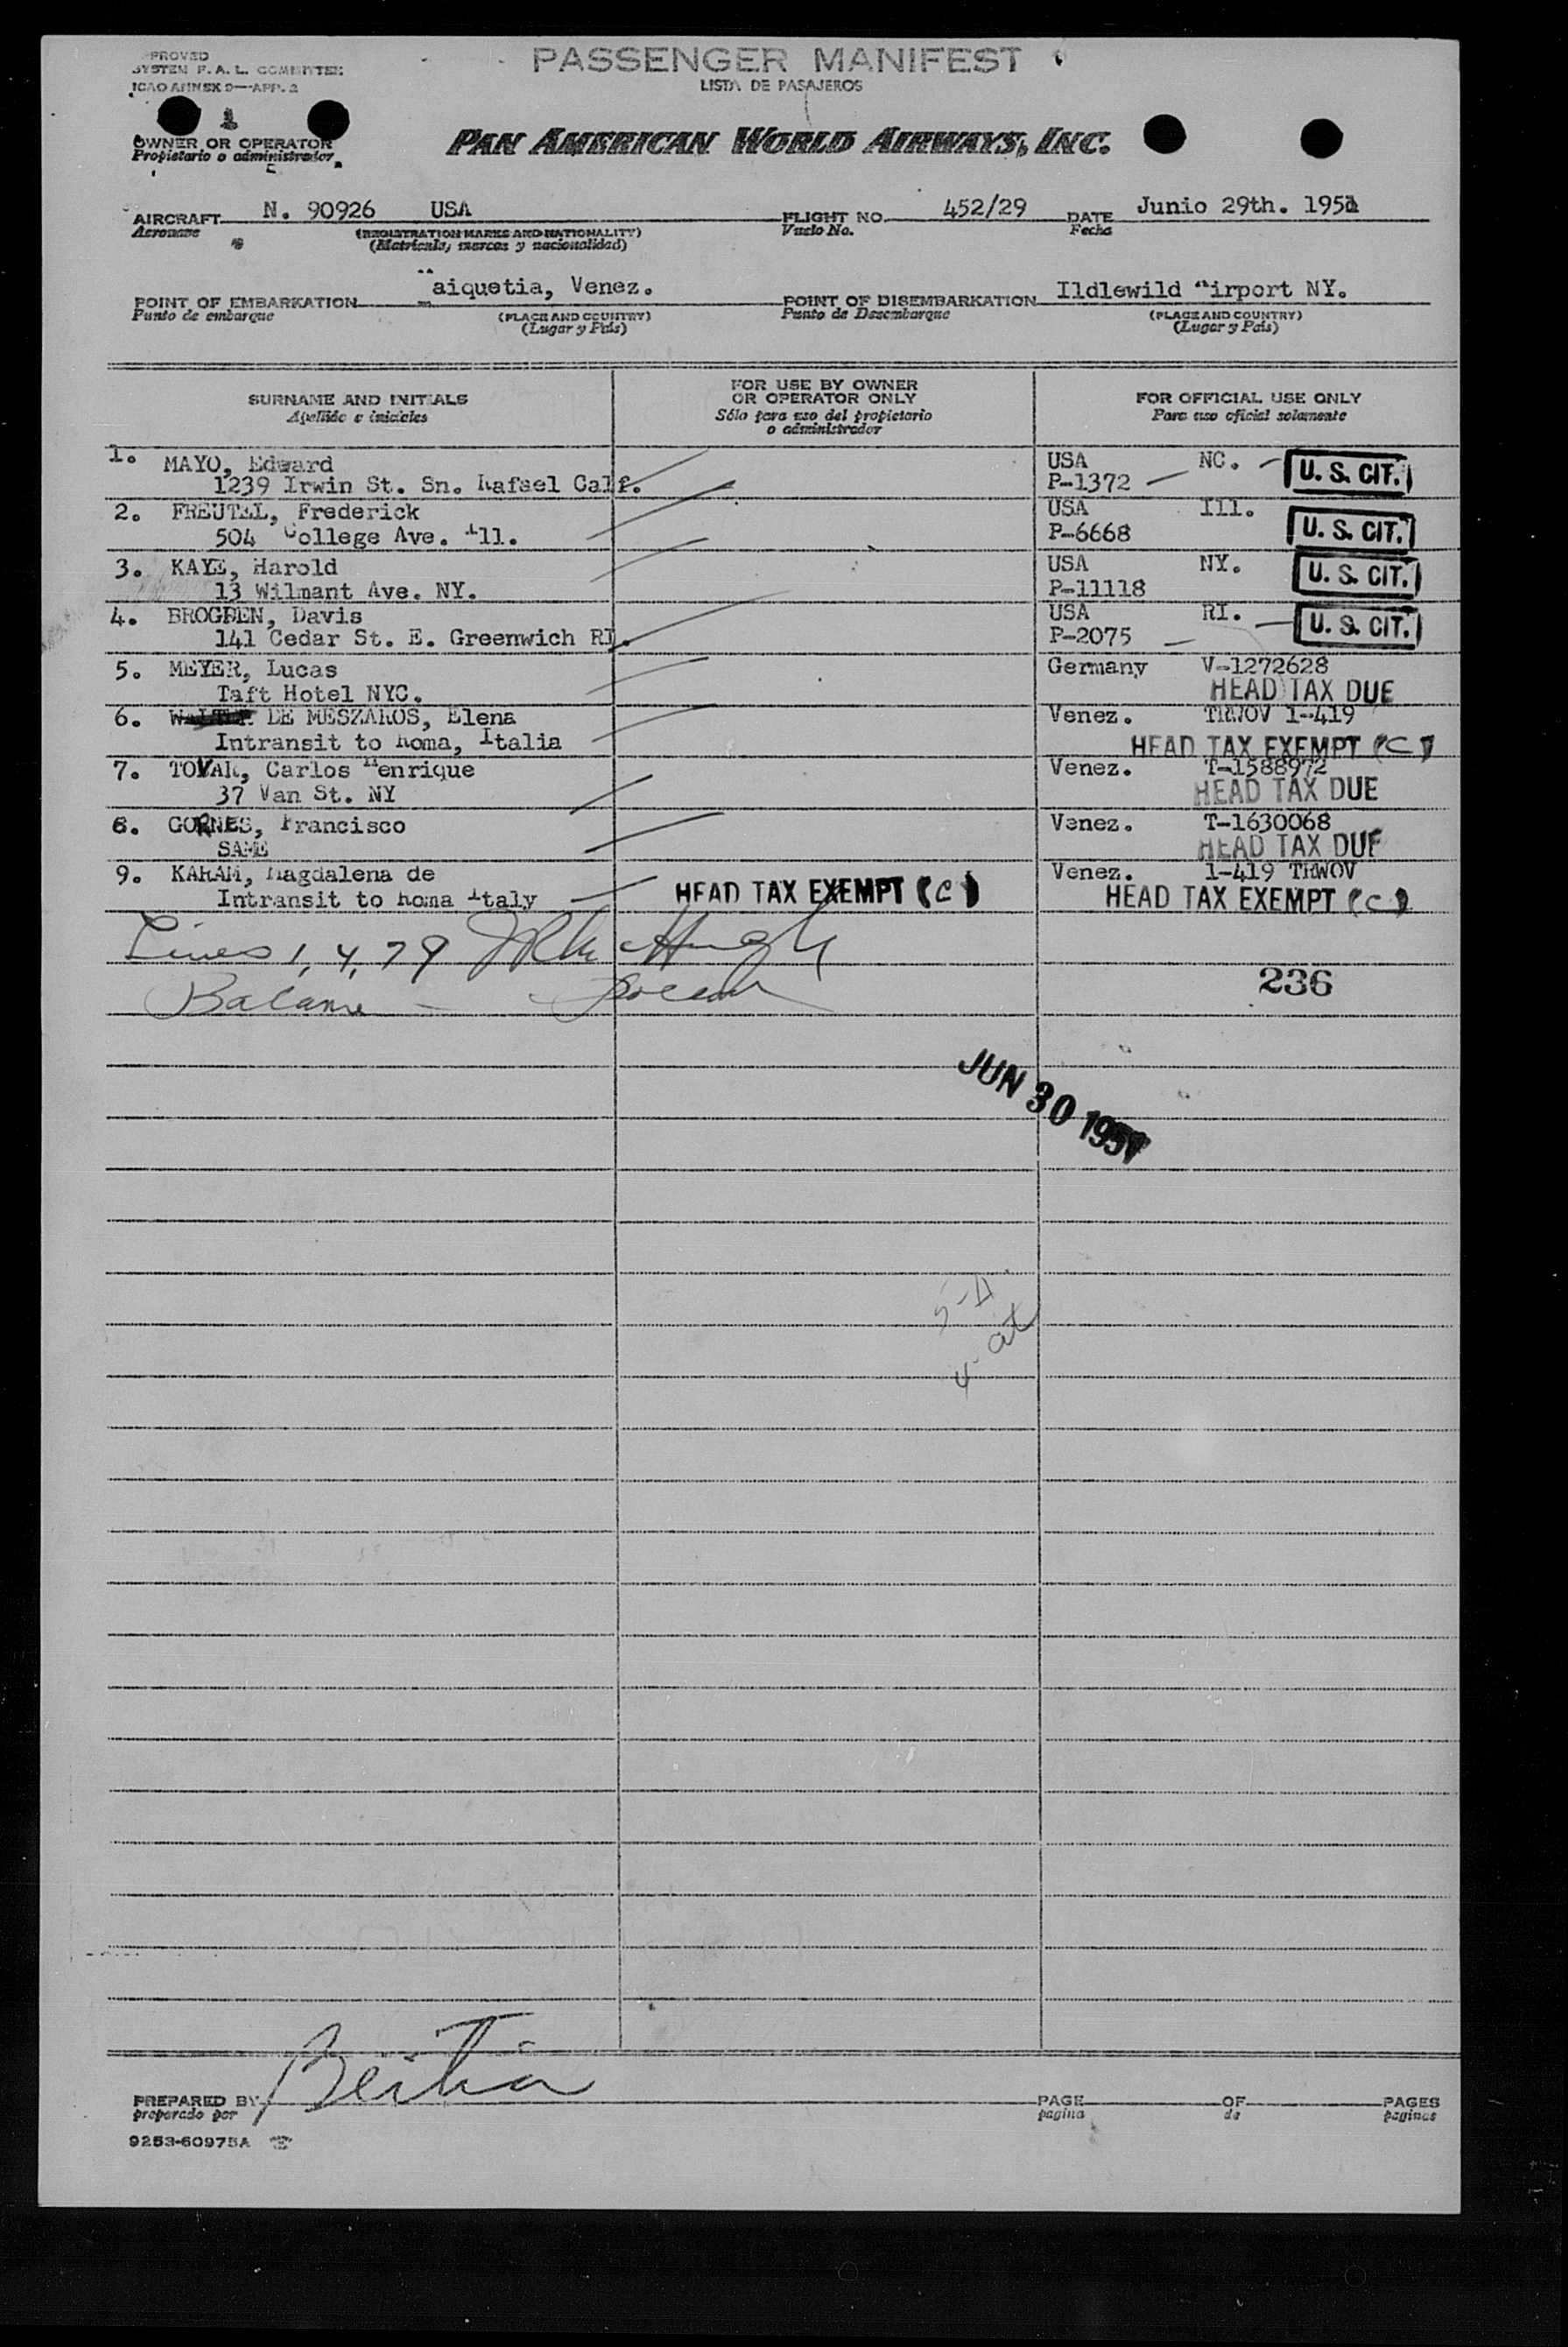 PROVED
SYSTEM F. A. L. COMMITTEE
ICAO ANNEX 9—APP. 2
PASSENGER MANIFEST
LISTA DE PASAJEROS
1
OWNER OR OPERATOR
Propietario o administrador
PAN AMERICAN WORLD AIRWAYS, INC.
AIRCRAFT N. 90926 USA FLIGHT NO. 452/29 DATE Junio 29th. 1951
Aeronave (REGISTRATION MARKS AND NATIONALITY) Vuelo No. Fecha
(Matrícula, marcas y nacionalidad)
POINT OF EMBARKATION aiquetia, Venez. POINT OF DISEMBARKATION Ildlewild Airport NY.
Punto de embarque (PLACE AND COUNTRY) Punto de Desembarque (PLACE AND COUNTRY)
(Lugar y País) (Lugar y País)
SURNAME AND INITIALS FOR USE BY OWNER OR OPERATOR ONLY FOR OFFICIAL USE ONLY
Apellido e iniciales Sólo para uso del propietario o administrador Para uso oficial solamente
1. MAYO, Edward USA NC. U. S. CIT.
1239 Irwin St. Sn. Rafael Calf. P-1372
2. FREUTEL, Frederick USA Ill. U. S. CIT.
504 College Ave. Ill. P-6668
3. KAYE, Harold USA NY. U. S. CIT.
13 Wilmant Ave. NY. P-11118
4. BROGDEN, Davis USA RI. U. S. CIT.
141 Cedar St. E. Greenwich RI. P-2075
5. MEYER, Lucas Germany V-1272628
Taft Hotel NYC. HEAD TAX DUE
6. DE MESZAROS, Elena Venez. TRWOV 1-419
Intransit to Roma, Italia HEAD TAX EXEMPT (C)
7. TOVAR, Carlos Henrique Venez. T-1588972
37 Van St. NY HEAD TAX DUE
8. GORNES, Francisco Venez. T-1630068
SAME HEAD TAX DUE
9. KARAM, Magdalena de Venez. 1-419 TRWOV
Intransit to Roma Italy HEAD TAX EXEMPT (C) HEAD TAX EXEMPT (C)
Lines 1, 4, 7 9
Balance
236
JUN 30 1951
4- at
PREPARED BY PAGE OF PAGES
preparado por pagina de paginas
9253-60975A